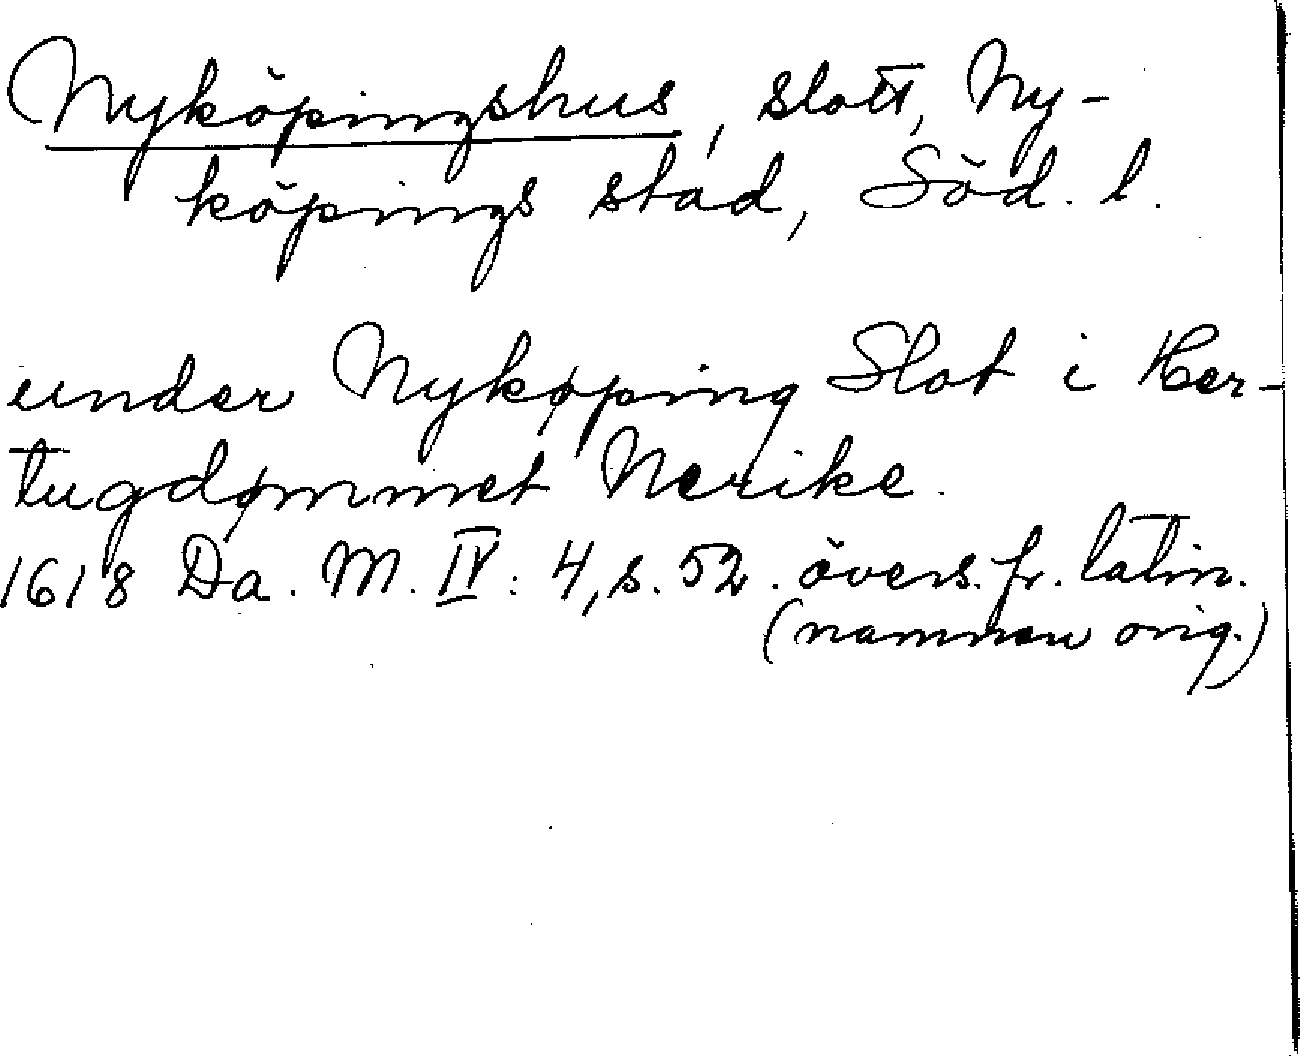 Nyköpingshus, slott, Ny-
köpings stad, Söd. l.
under Nykøping Slot i Her-
tugdømmet Nerike.
1618 Da. M. IV: 4, s. 52. övers. fr. latin.
(namnen orig.)